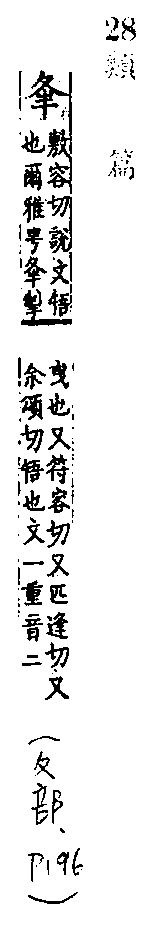 28 類篇
夆
敷容切說文悟
也爾雅甹夆掣
曳也又符容切又匹逢切又
余頌切悟也文一重音二
(夂部、P196)